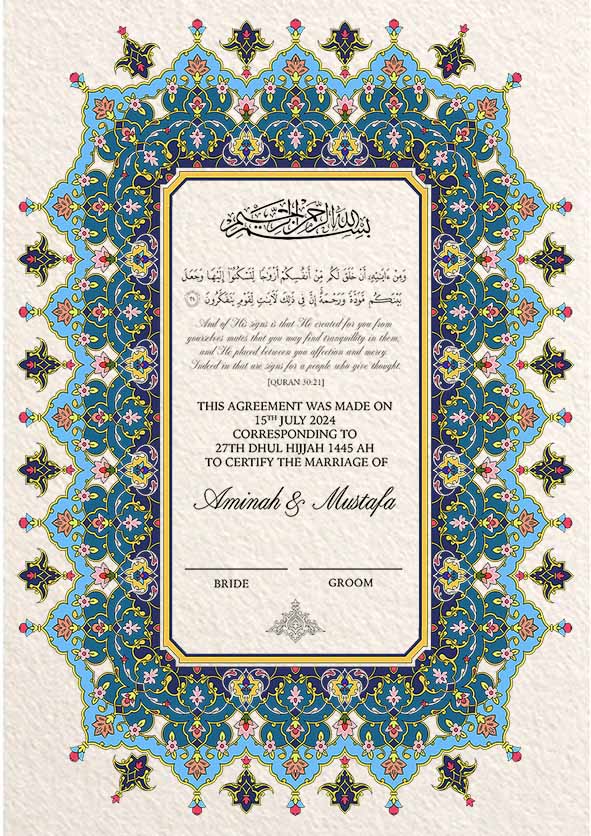 بسم الله الرحمن الرحيم
وَمِنْ ءَايَٰتِهِۦٓ أَنْ خَلَقَ لَكُم مِّنْ أَنفُسِكُمْ أَزْوَٰجًا لِّتَسْكُنُوٓا۟ إِلَيْهَا وَجَعَلَ
بَيْنَكُم مَّوَدَّةً وَرَحْمَةً إِنَّ فِى ذَٰلِكَ لَـَٔايَٰتٍ لِّقَوْمٍ يَتَفَكَّرُونَ ٢١
And of His signs is that He created for you from
yourselves mates that you may find tranquility in them,
and He placed between you affection and mercy.
Indeed in that are signs for a people who give thought.
[QURAN 30:21]
THIS AGREEMENT WAS MADE ON
15TH JULY 2024
CORRESPONDING TO
27TH DHUL HIJJAH 1445 AH
TO CERTIFY THE MARRIAGE OF
Aminah & Mustafa
BRIDE GROOM